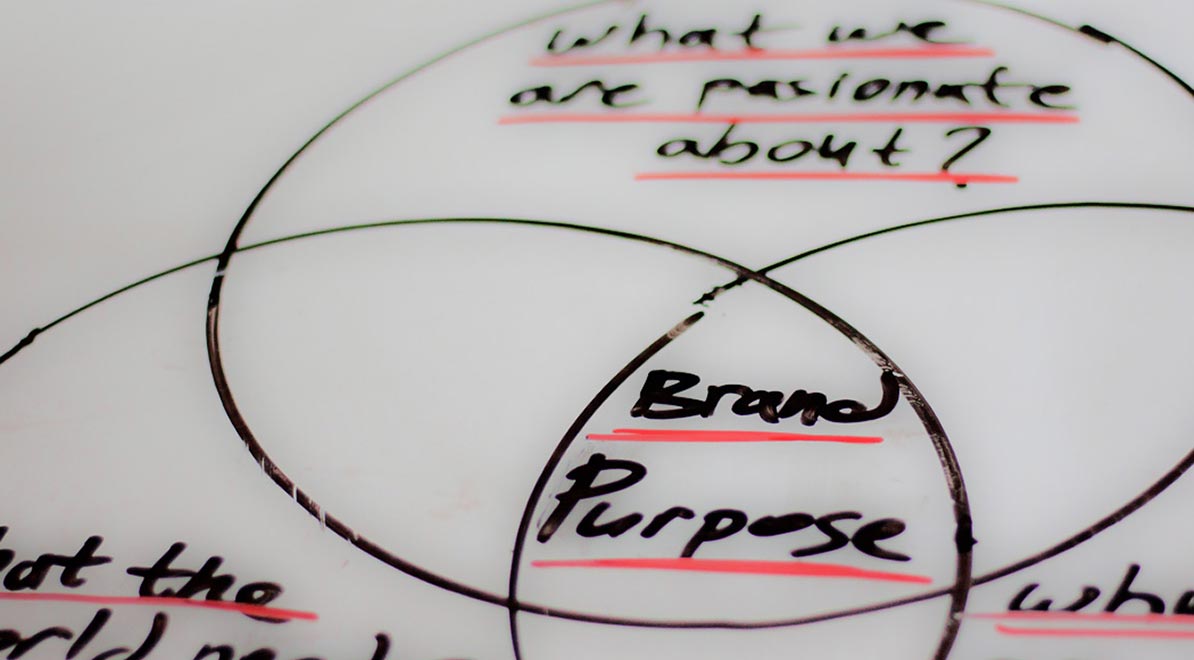 what we
are pasionate
about?
Brand
Purpose
the